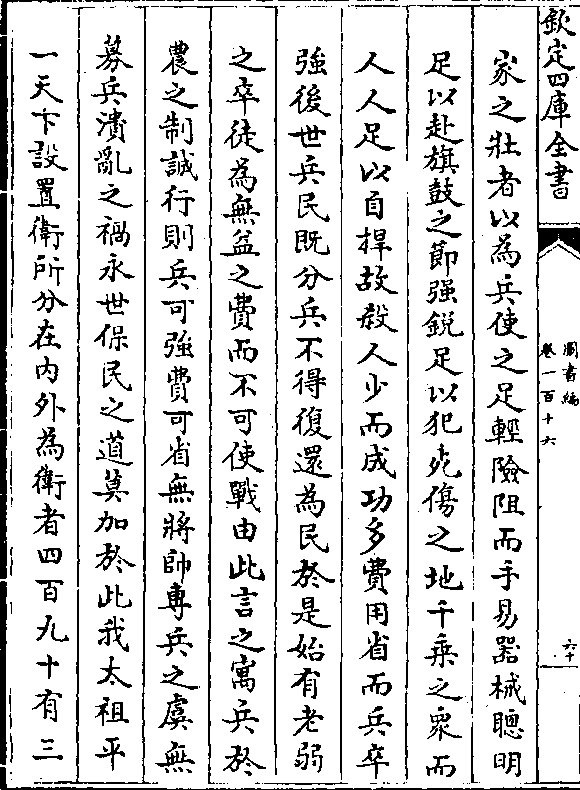 欽定四庫全書
圖書編
卷一百十六
六十
家之壯者以為兵使之足輕險阻而手易器械聰明
足以赴旗鼓之節强銳足以犯死傷之地千乗之衆而
人人足以自捍故殺人少而成功多費用省而兵卒
強後世兵民既分兵不得復還為民於是始有老弱
之卒徒為無益之費而不可使戰由此言之寓兵於
農之制誠行則兵可強費可省無將帥專兵之虞無
募兵潰亂之禍永世保民之道莫加於此我太祖平
一天下設置衛所分在內外為衛者四百九十有三